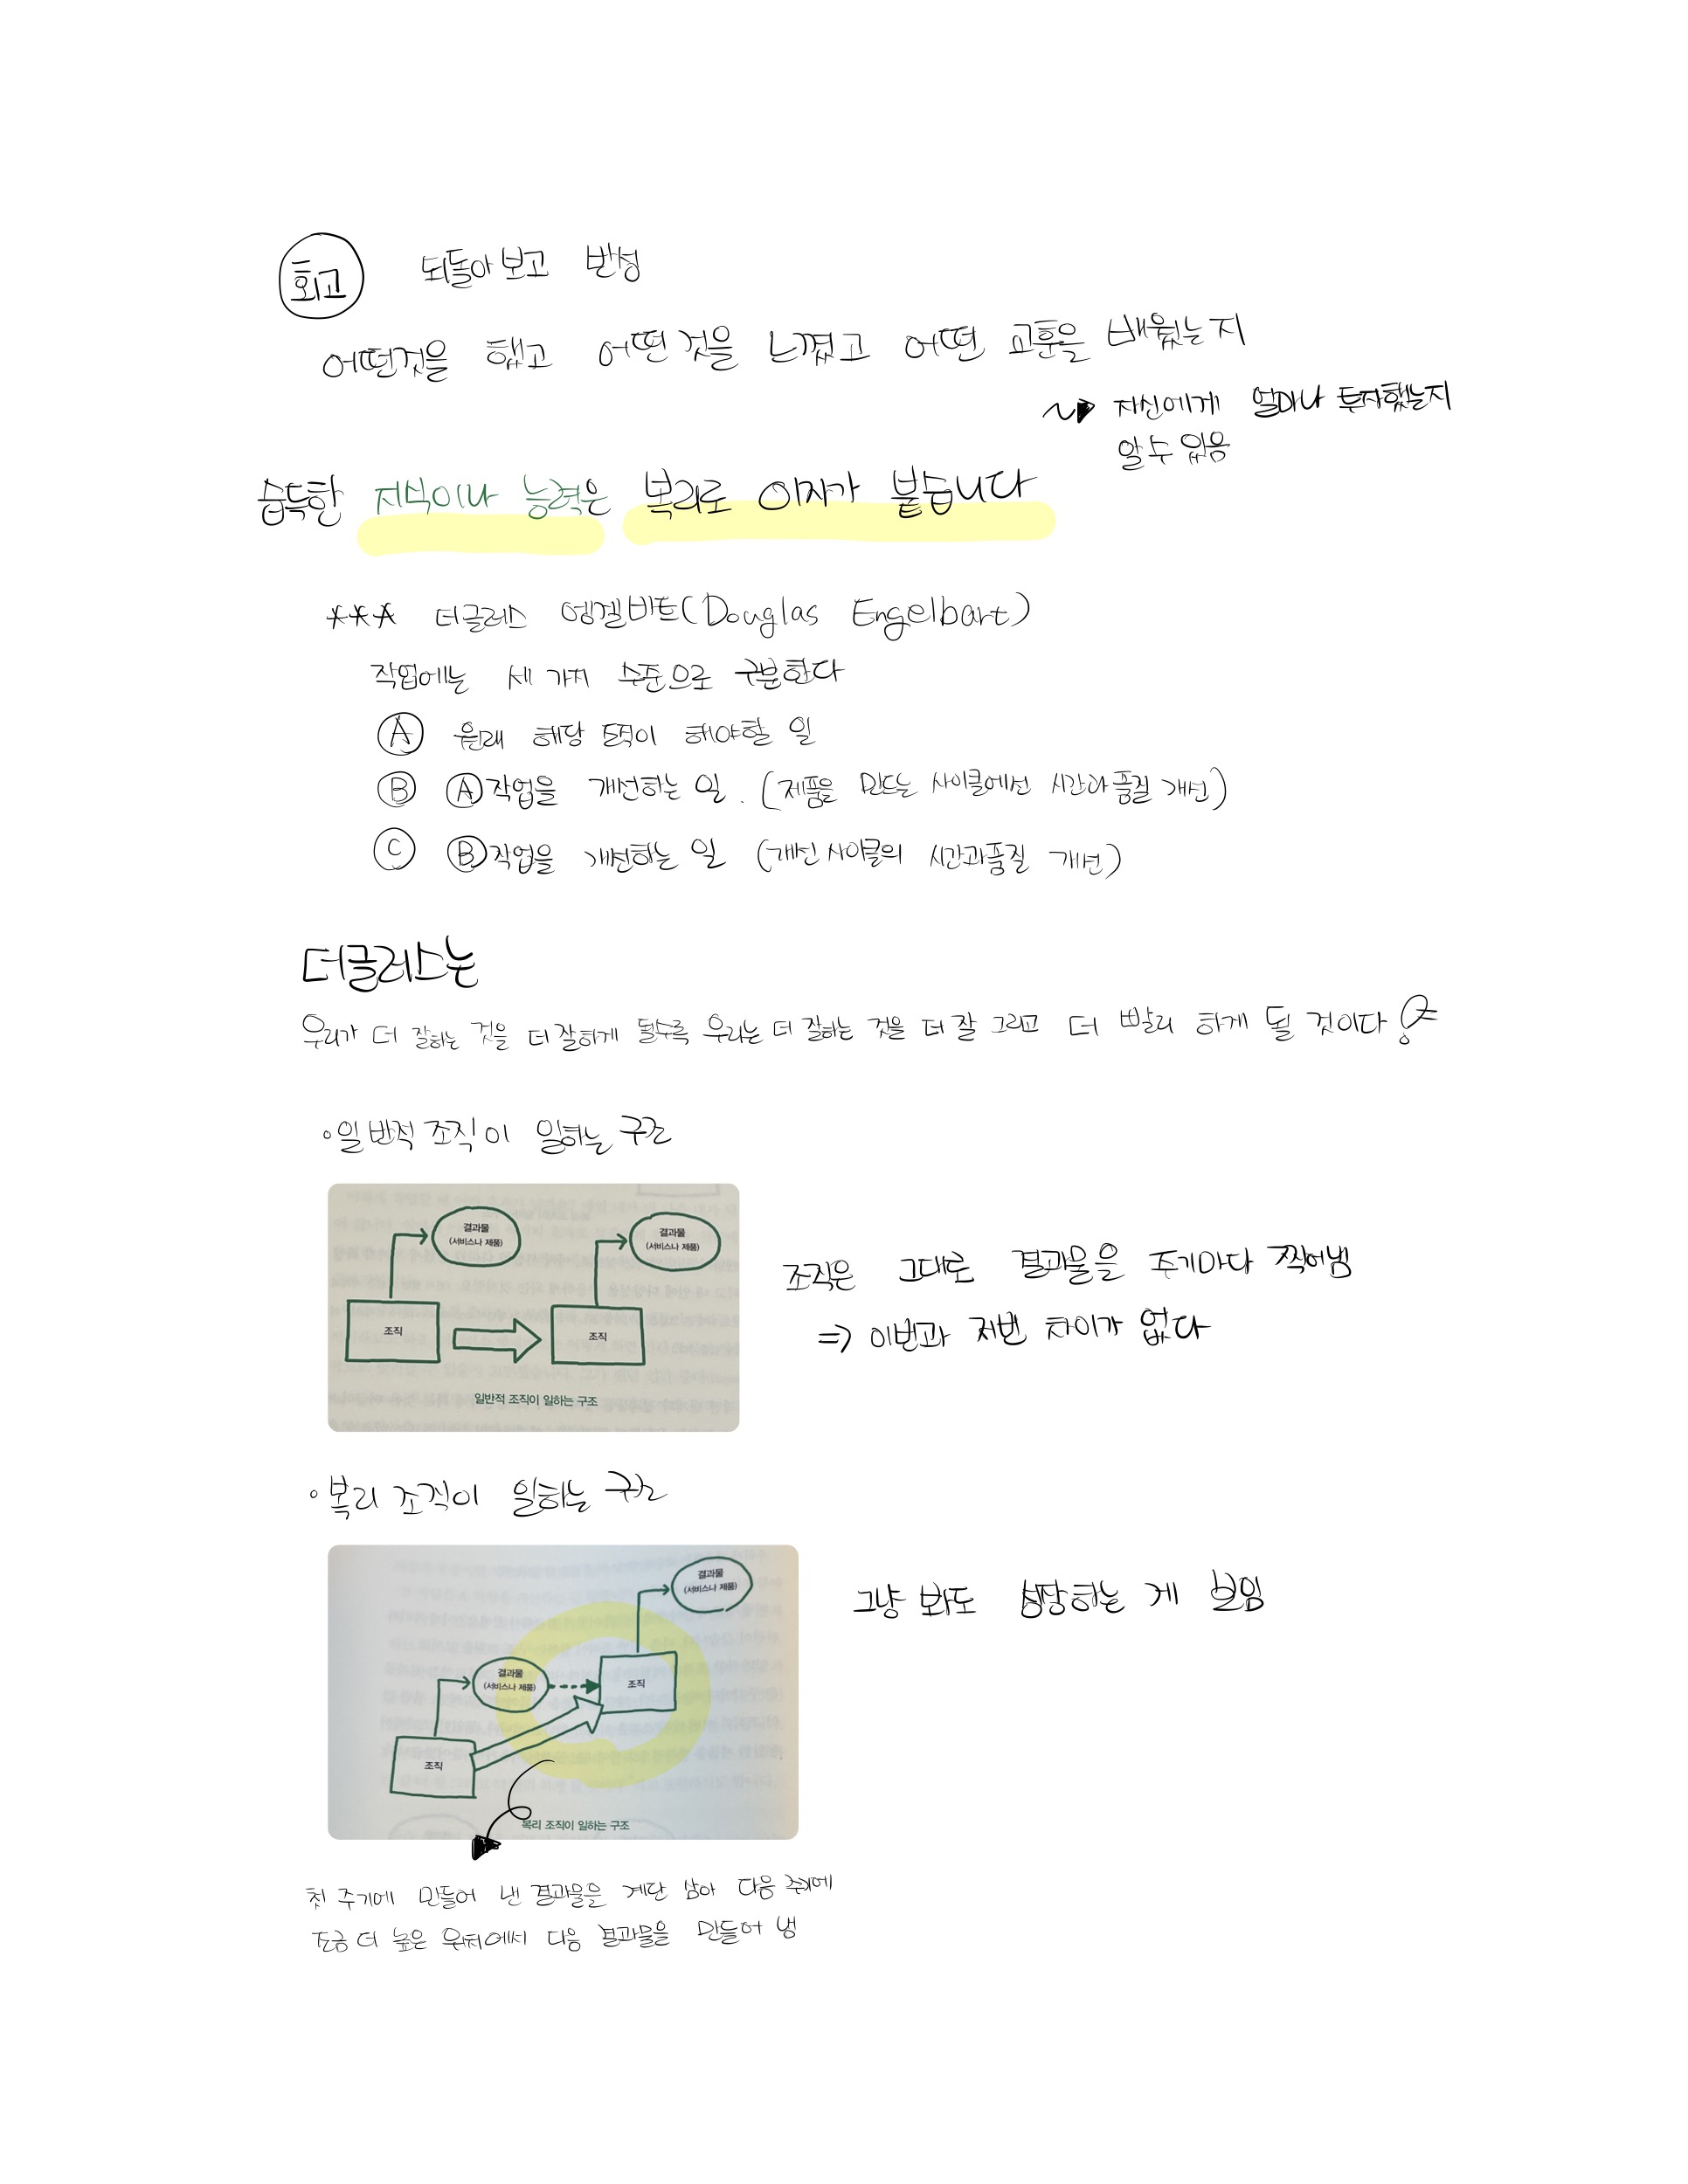 회고 되돌아보고 반성
어떤것을 했고 어떤것을 느꼈고 어떤 교훈을 배웠는지
자신에게 얼마나 투자했는지
알수 있음
습득한 지식이나 능력은 복리로 이자가 붙습니다
*** 더글레스 엥겔바트(Douglas Engelbart)
작업에는 세 가지 수준으로 구분한다
Ⓐ 원래 해당 조직이 해야할 일
Ⓑ Ⓐ작업을 개선하는 일. (제품을 만드는 사이클에선 시간과 품질 개선)
Ⓒ Ⓑ작업을 개선하는 일 (개선 사이클의 시간과 품질 개선)
더글레스는
우리가 더 잘하는 것을 더 잘하게 될수록 우리는 더 잘하는 것을 더 잘 그리고 더 빨리 하게 될 것이다
• 일반적 조직이 일하는 구조
결과물
(서비스나 제품)
결과물
(서비스나 제품)
조직
조직
일반적 조직이 일하는 구조
조직은 그대로 결과물을 주기마다 찍어냄
=> 이번과 저번 차이가 없다
• 복리 조직이 일하는 구조
결과물
(서비스나 제품)
결과물
(서비스나 제품)
조직
조직
복리 조직이 일하는 구조
그냥 봐도 성장하는 게 보임
첫 주기에 만들어 낸 결과물을 계단 삼아 다음 주기에
조금 더 높은 위치에서 다음 결과물을 만들어 냄